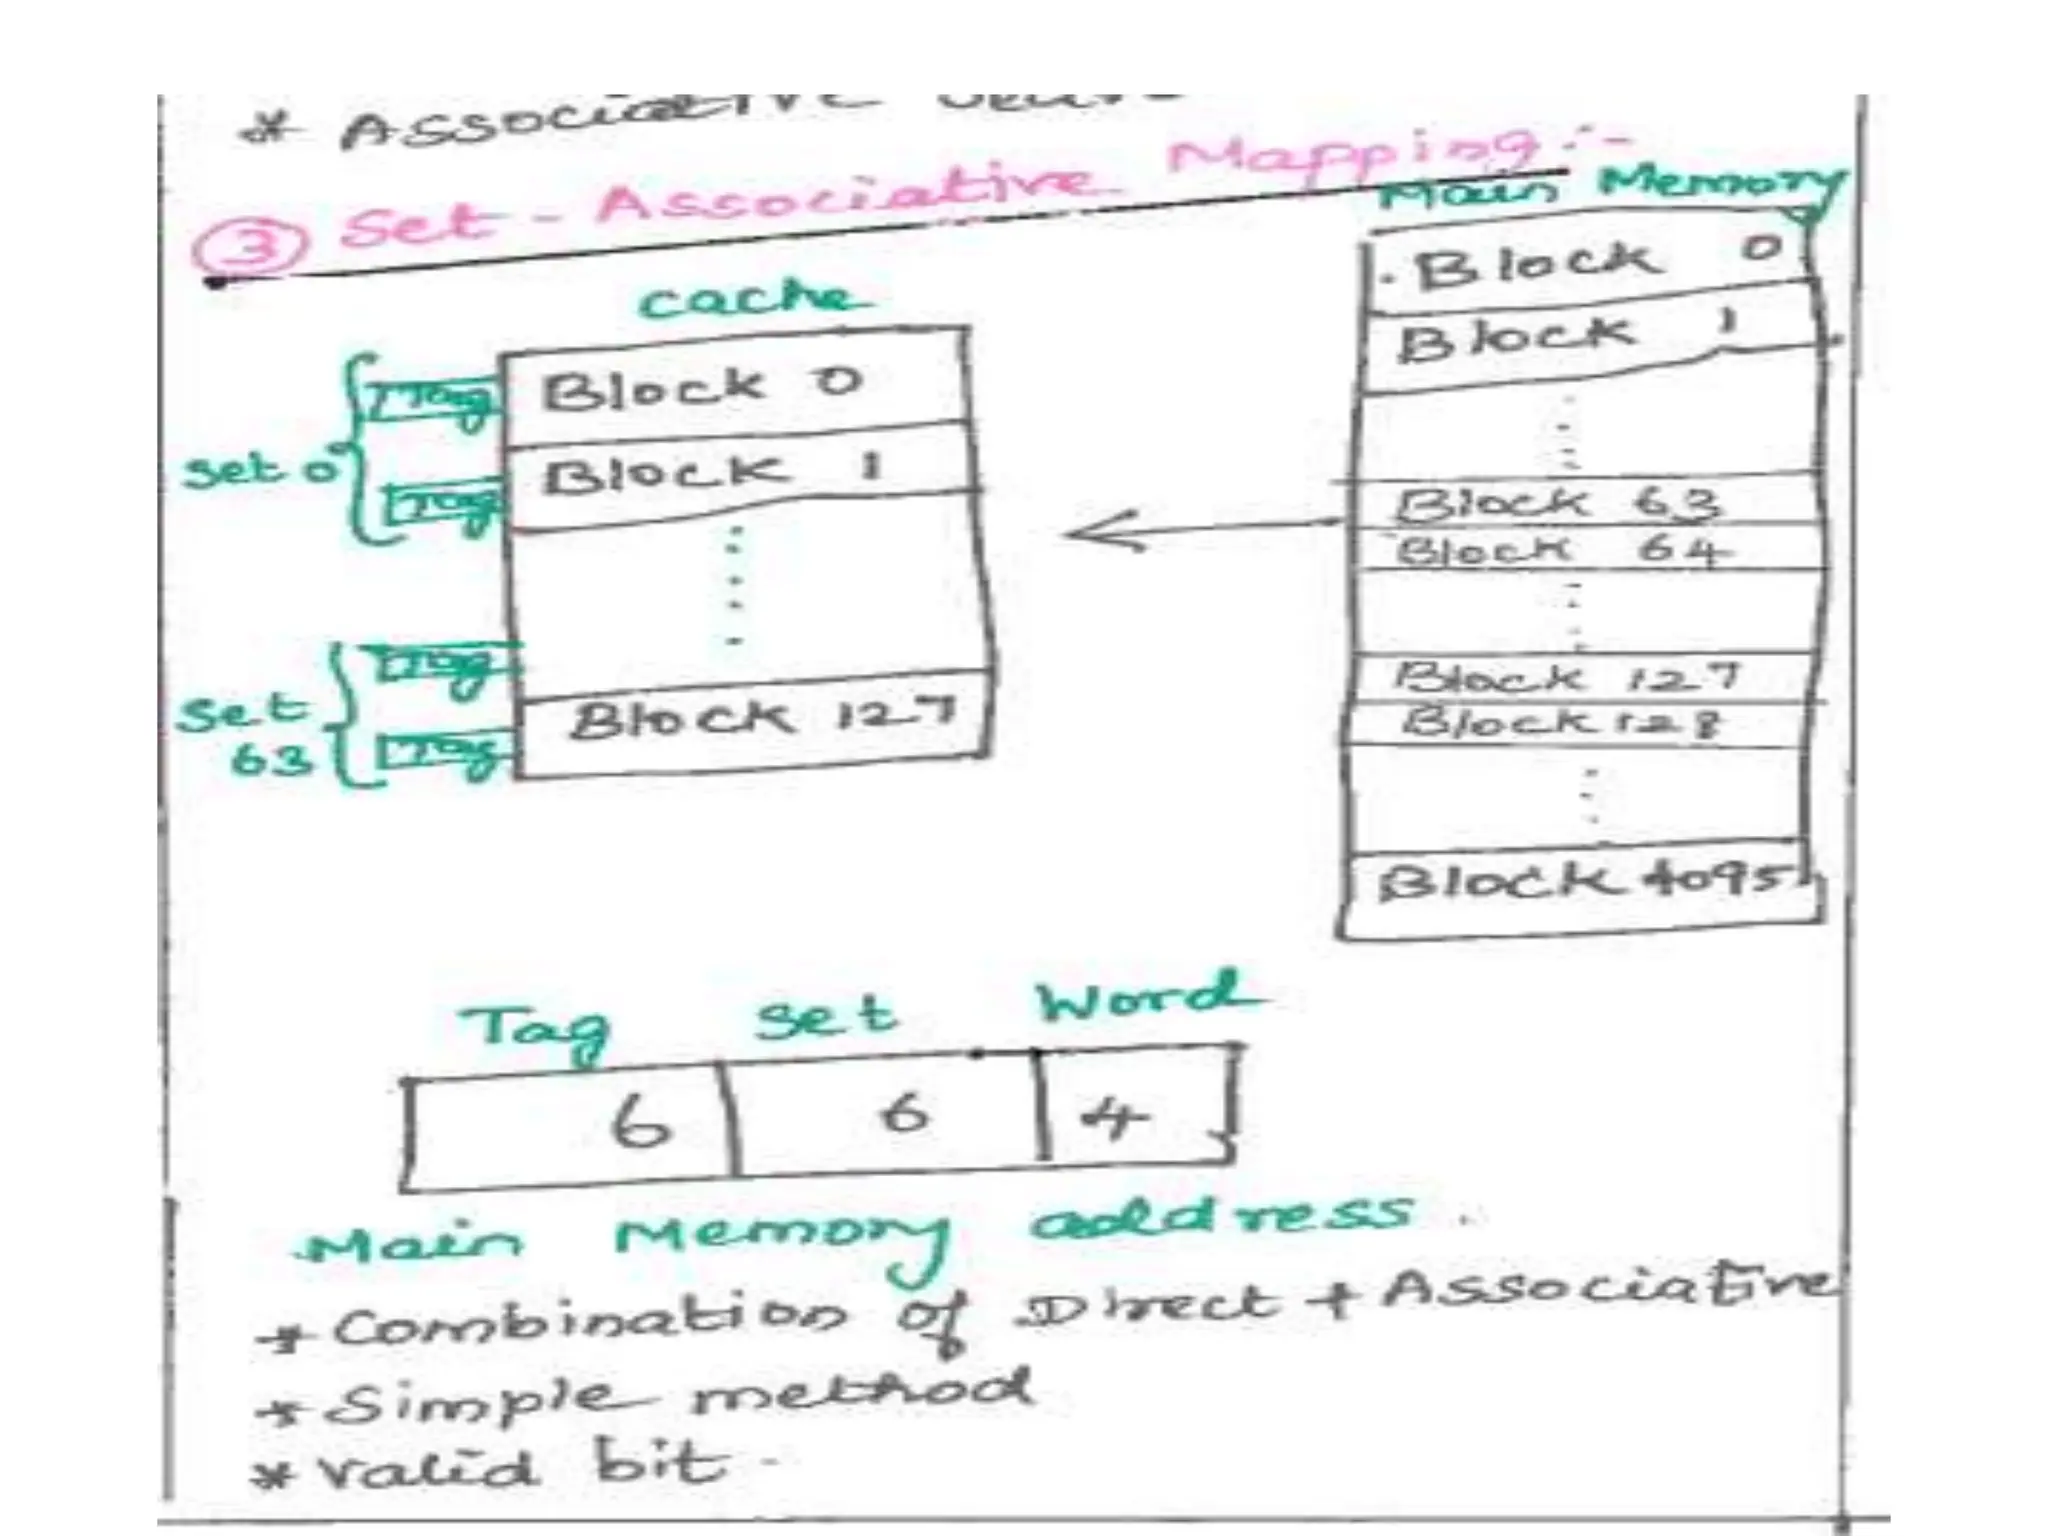 * Associative
③ Set - Associative Mapping :-
Main Memory
cache
Block 0
Block 1
Block 63
Block 64
Block 127
Block 128
Block 4095
Set 0
Tag Block 0
Tag Block 1
Set 63
Tag
Tag Block 127
Tag Set Word
6 6 4
Main Memory address.
* Combination of Direct + Associative
* Simple method
* Valid bit.